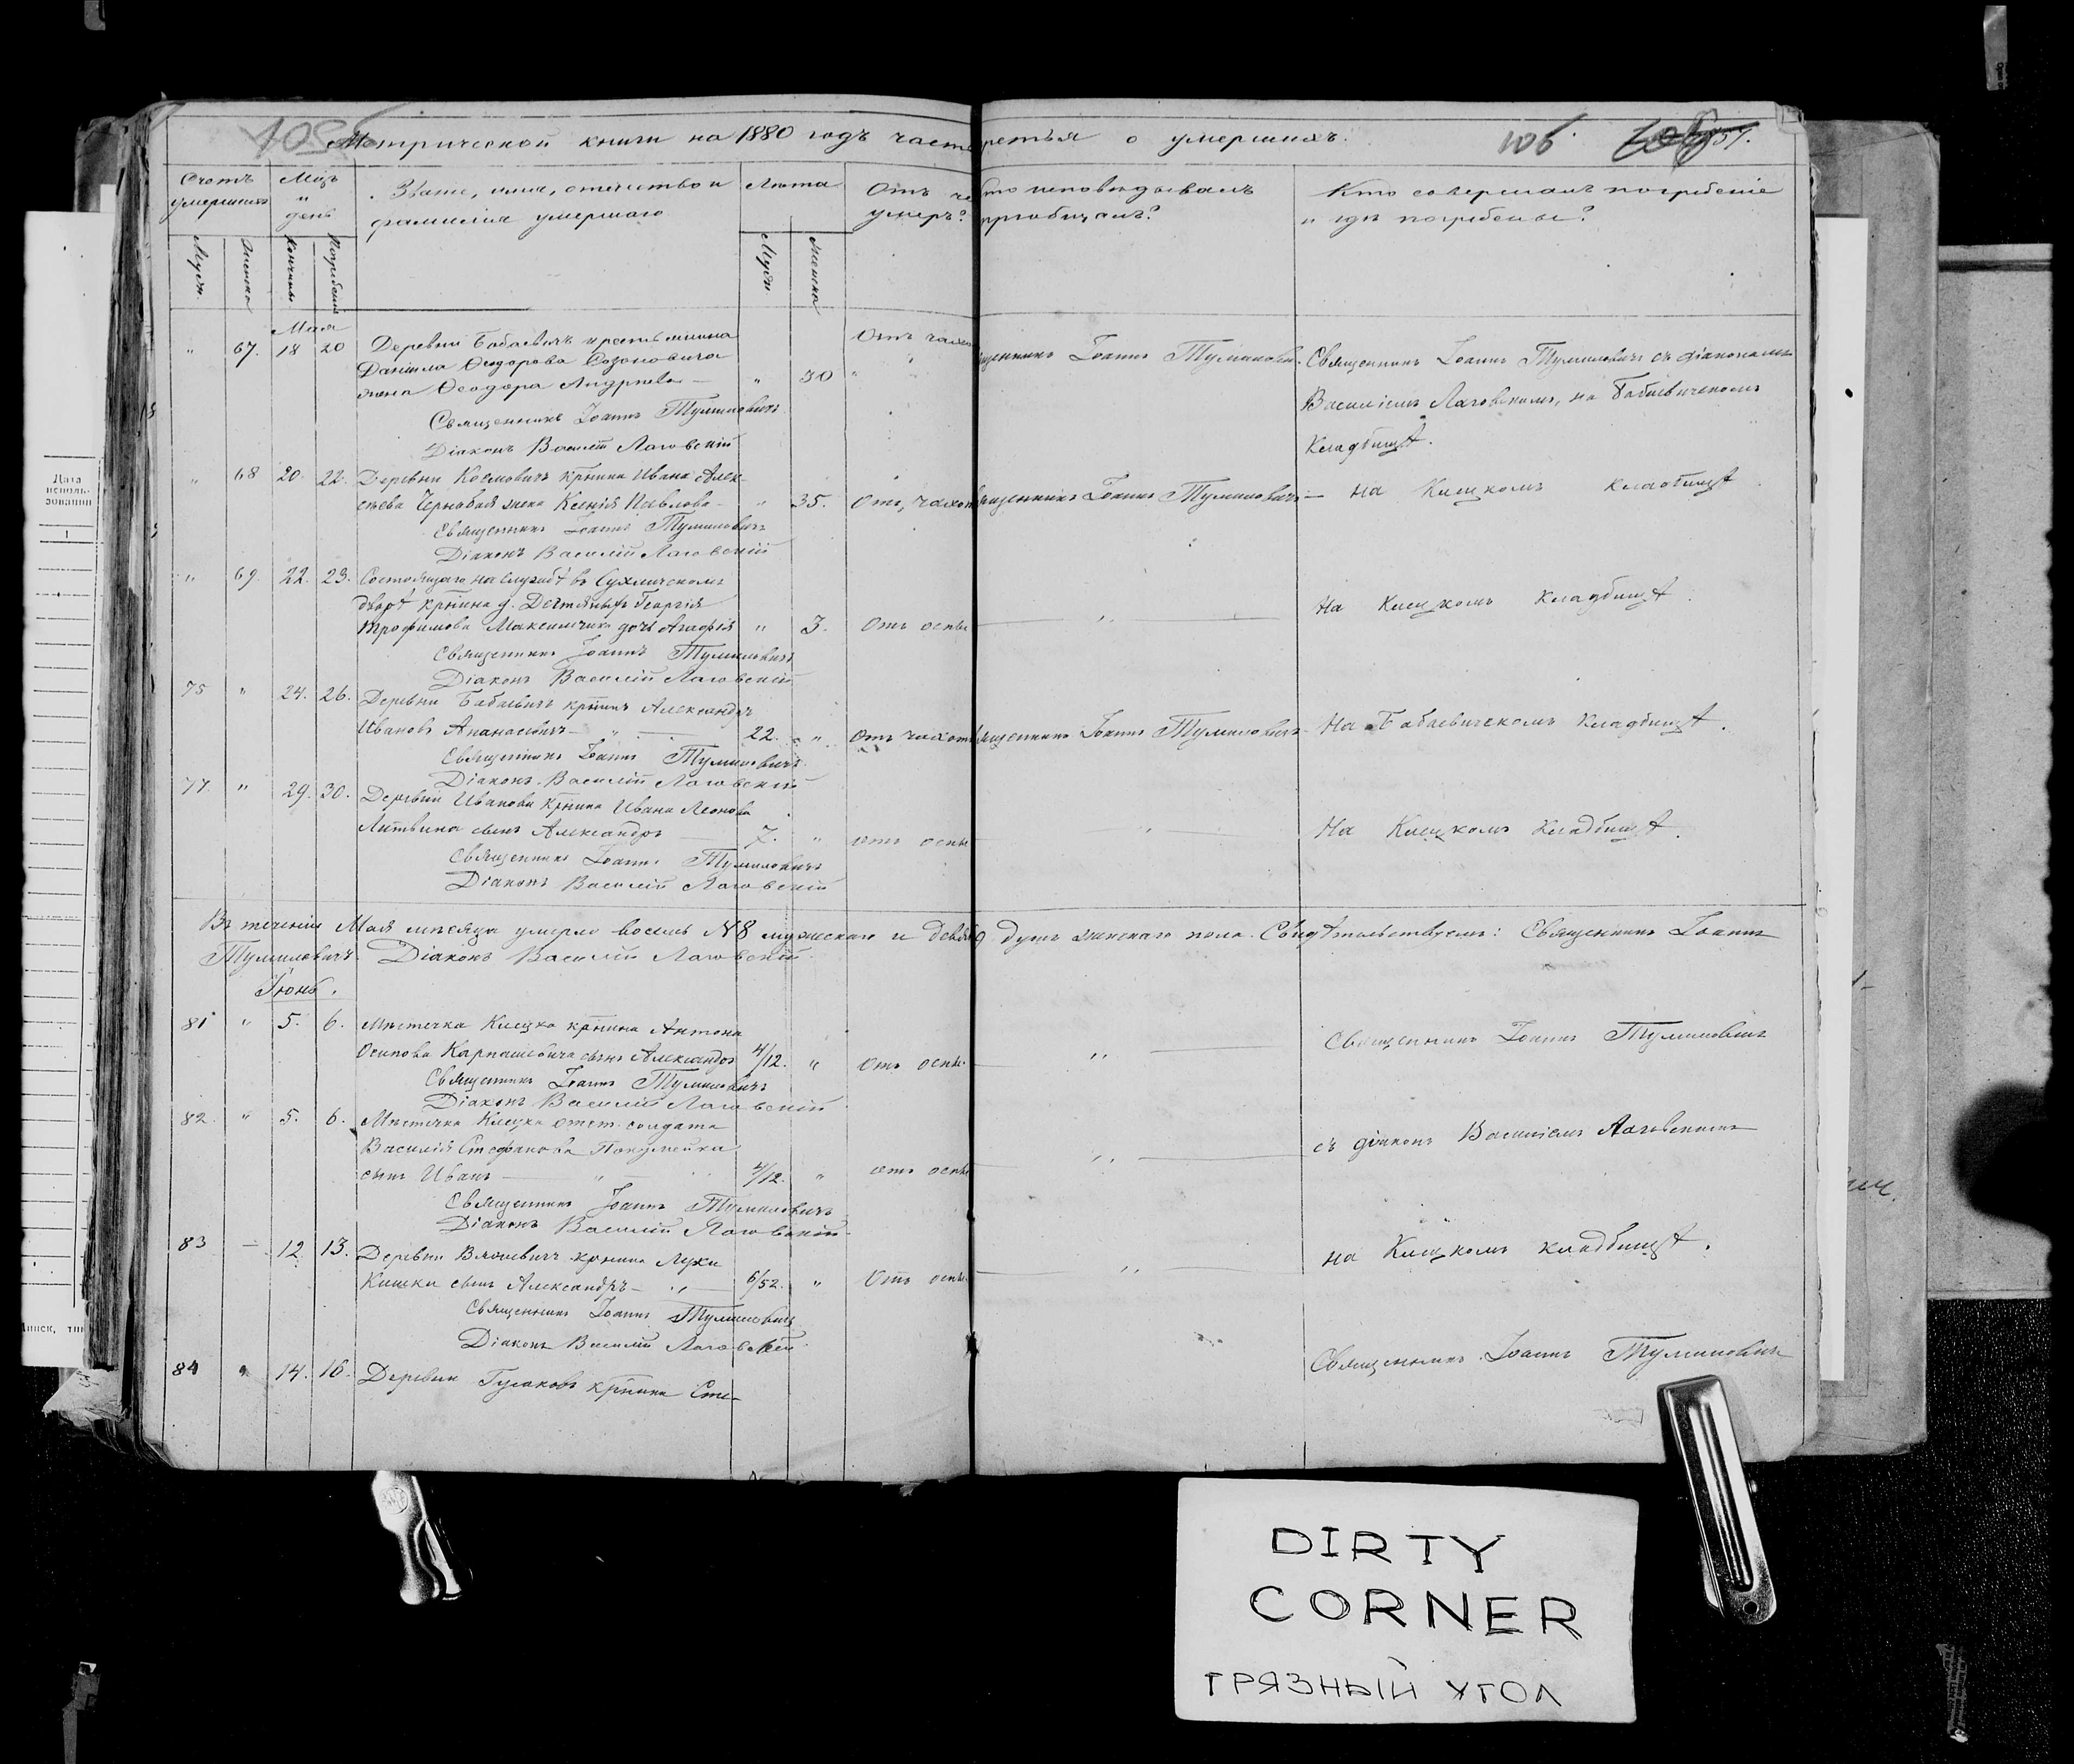 Метрической книги на 1880 годъ часть третья о умершихъ.
106
Счетъ умершихъ
Мѣц. и день
Званіе, имя, отечество и фамилія умершаго
Лѣта
Отъ чего умеръ?
Кто исповѣдывалъ и пріобщалъ?
Кто совершалъ погребеніе и гдѣ погребены?
Мужск.
Женска
Кончины
Погребенія
Мужск.
Женска
Мая
" 67. 18 20 Деревни Бабаевичъ крестьянина Отъ чахот
Даніила Ѳеодорова Созоновича Священникъ Іоаннъ Тумиловичъ. Священникъ Іоаннъ Тумиловичъ съ діакономъ
жена Ѳеодора Андреева " 30
Священникъ Іоаннъ Тумиловичъ Василіемъ Лаговскимъ, на Бабаевическомъ
Діаконъ Василій Лаговскій Кладбищѣ.
" 68 20. 22. Деревни Космовичъ крнина Ивана Алек-
сѣева Чернобая жена Ксенія Павлова " 35. Отъ чахот Священникъ Іоаннъ Тумиловичъ На Клецкомъ кладбищѣ
Священникъ Іоаннъ Тумиловичъ
Діаконъ Василій Лаговскій
" 69. 22. 23. Состоящаго на службѣ въ Сухличскомъ
дворѣ крнина д. Георгія На Клецкомъ Кладбищѣ.
Трофимова дочь Агафія " 3. Отъ оспы "
Священникъ Іоаннъ Тумиловичъ
Діаконъ Василій Лаговскій
75 " 24. 26. Деревни Бабаевичъ крнинъ Александръ
Ивановъ Апанасевичъ 22. " Отъ чахот Священникъ Іоаннъ Тумиловичъ На Бабаевическомъ Кладбищѣ.
Священникъ Іоаннъ Тумиловичъ
Діаконъ Василій Лаговскій
77. " 29. 30. Деревни Иванова крнина Ивана Леонова
Литвина сынъ Александръ 7. " отъ оспы " На Клецкомъ Кладбищѣ.
Священникъ Іоаннъ Тумиловичъ
Діаконъ Василій Лаговскій
Въ теченіи Мая мѣсяца умерло восемь №8 мужескаго и девять 9 душъ женскаго пола. Свидѣтельствуемъ: Священникъ Іоаннъ
Тумиловичъ. Діаконъ Василій Лаговскій.
Іюнь.
81 " 5. 6. Мѣстечка Клецка крнина Антона Священникъ Іоаннъ Тумиловичъ
Осипова Карпашевича сынъ Александръ 4/12. " Отъ оспы. "
Священникъ Іоаннъ Тумиловичъ
Діаконъ Василій Лаговскій
82. " 5. 6. Мѣстечка Клецка отст. солдата
Василія Стефанова съ діакон Василіемъ Лаговскимъ
сынъ Иванъ 4/12. " отъ оспы "
Священникъ Іоаннъ Тумиловичъ
Діаконъ Василій Лаговскій.
83 — 12 13. Деревни крнина Луки на Клецкомъ кладбищѣ.
Кишки сынъ Александръ 6/52. " Отъ оспы. "
Священникъ Іоаннъ Тумиловичъ
Діаконъ Василій Лаговскій.
84 " 14. 16. Деревни Гусаковъ крнина Сте- Священникъ Іоаннъ Тумиловичъ
Дата
исполь-
зования
1
DIRTY
CORNER
ГРЯЗНЫЙ УГОЛ